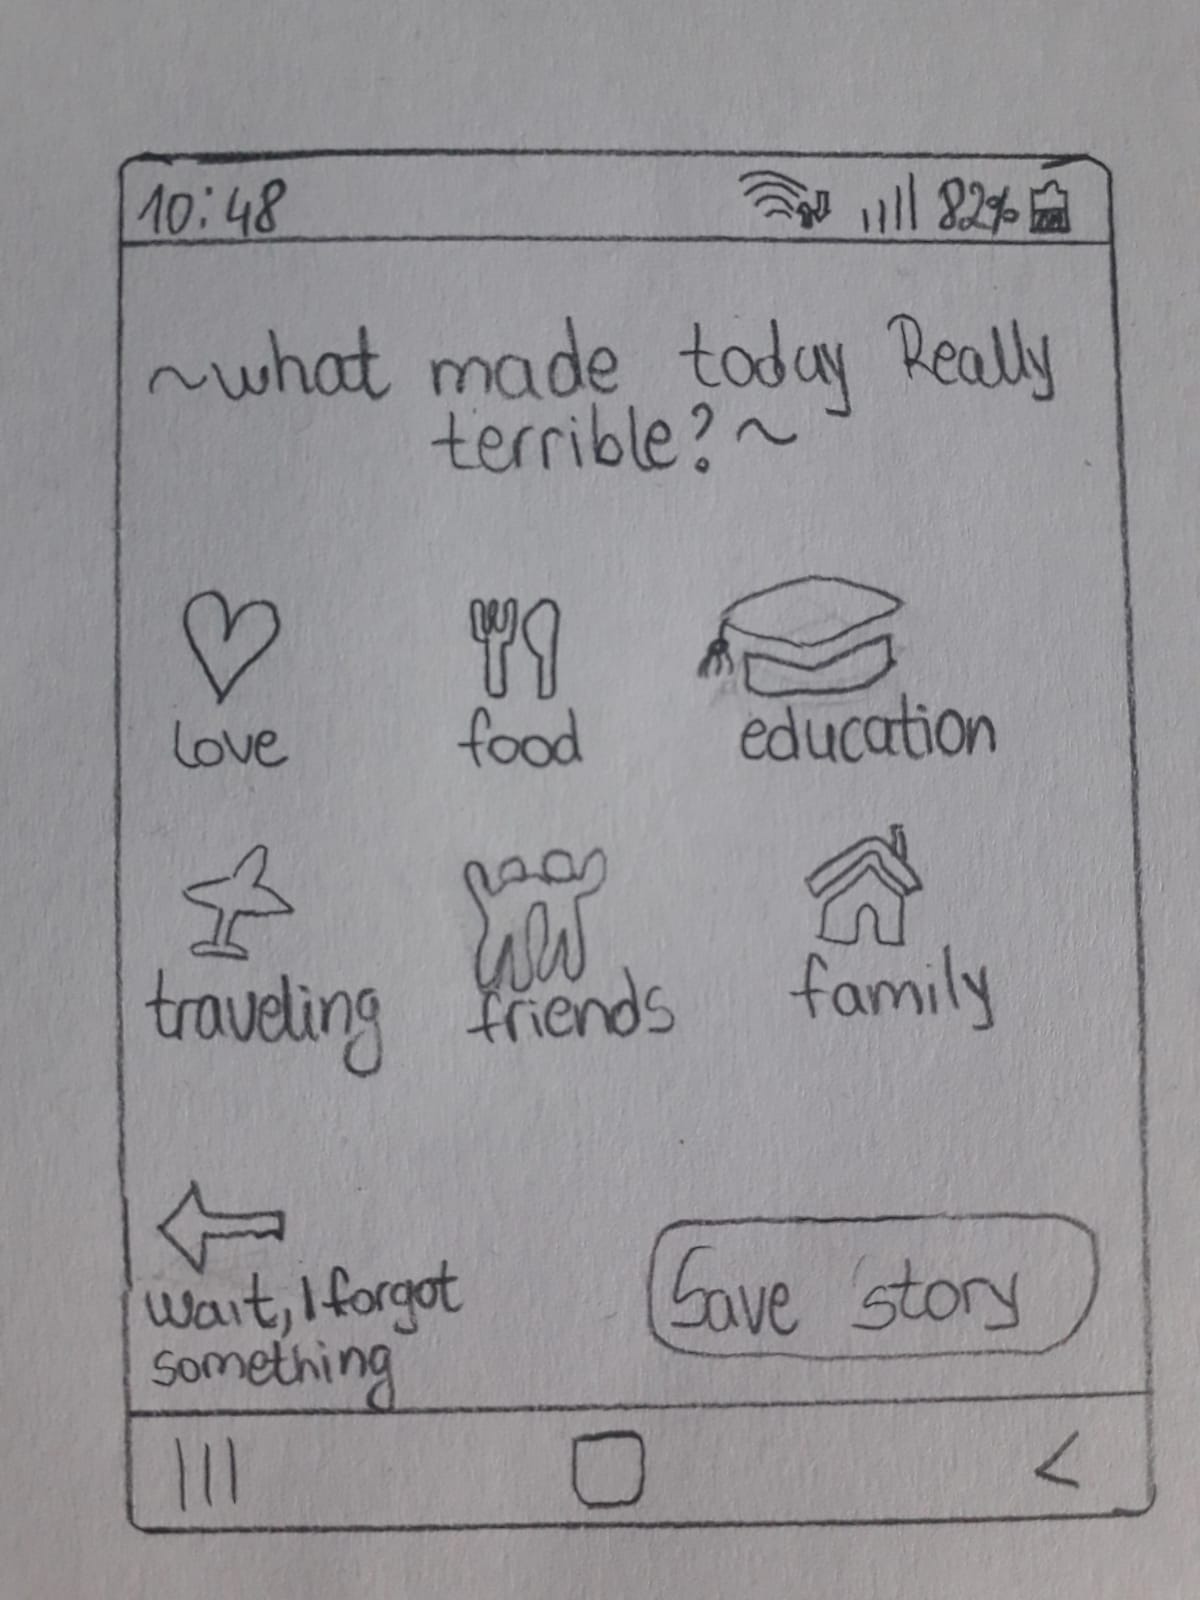 10:48 82%
~what made today Really
terrible?~
love food education
traveling friends family
wait, I forgot
something
Save story